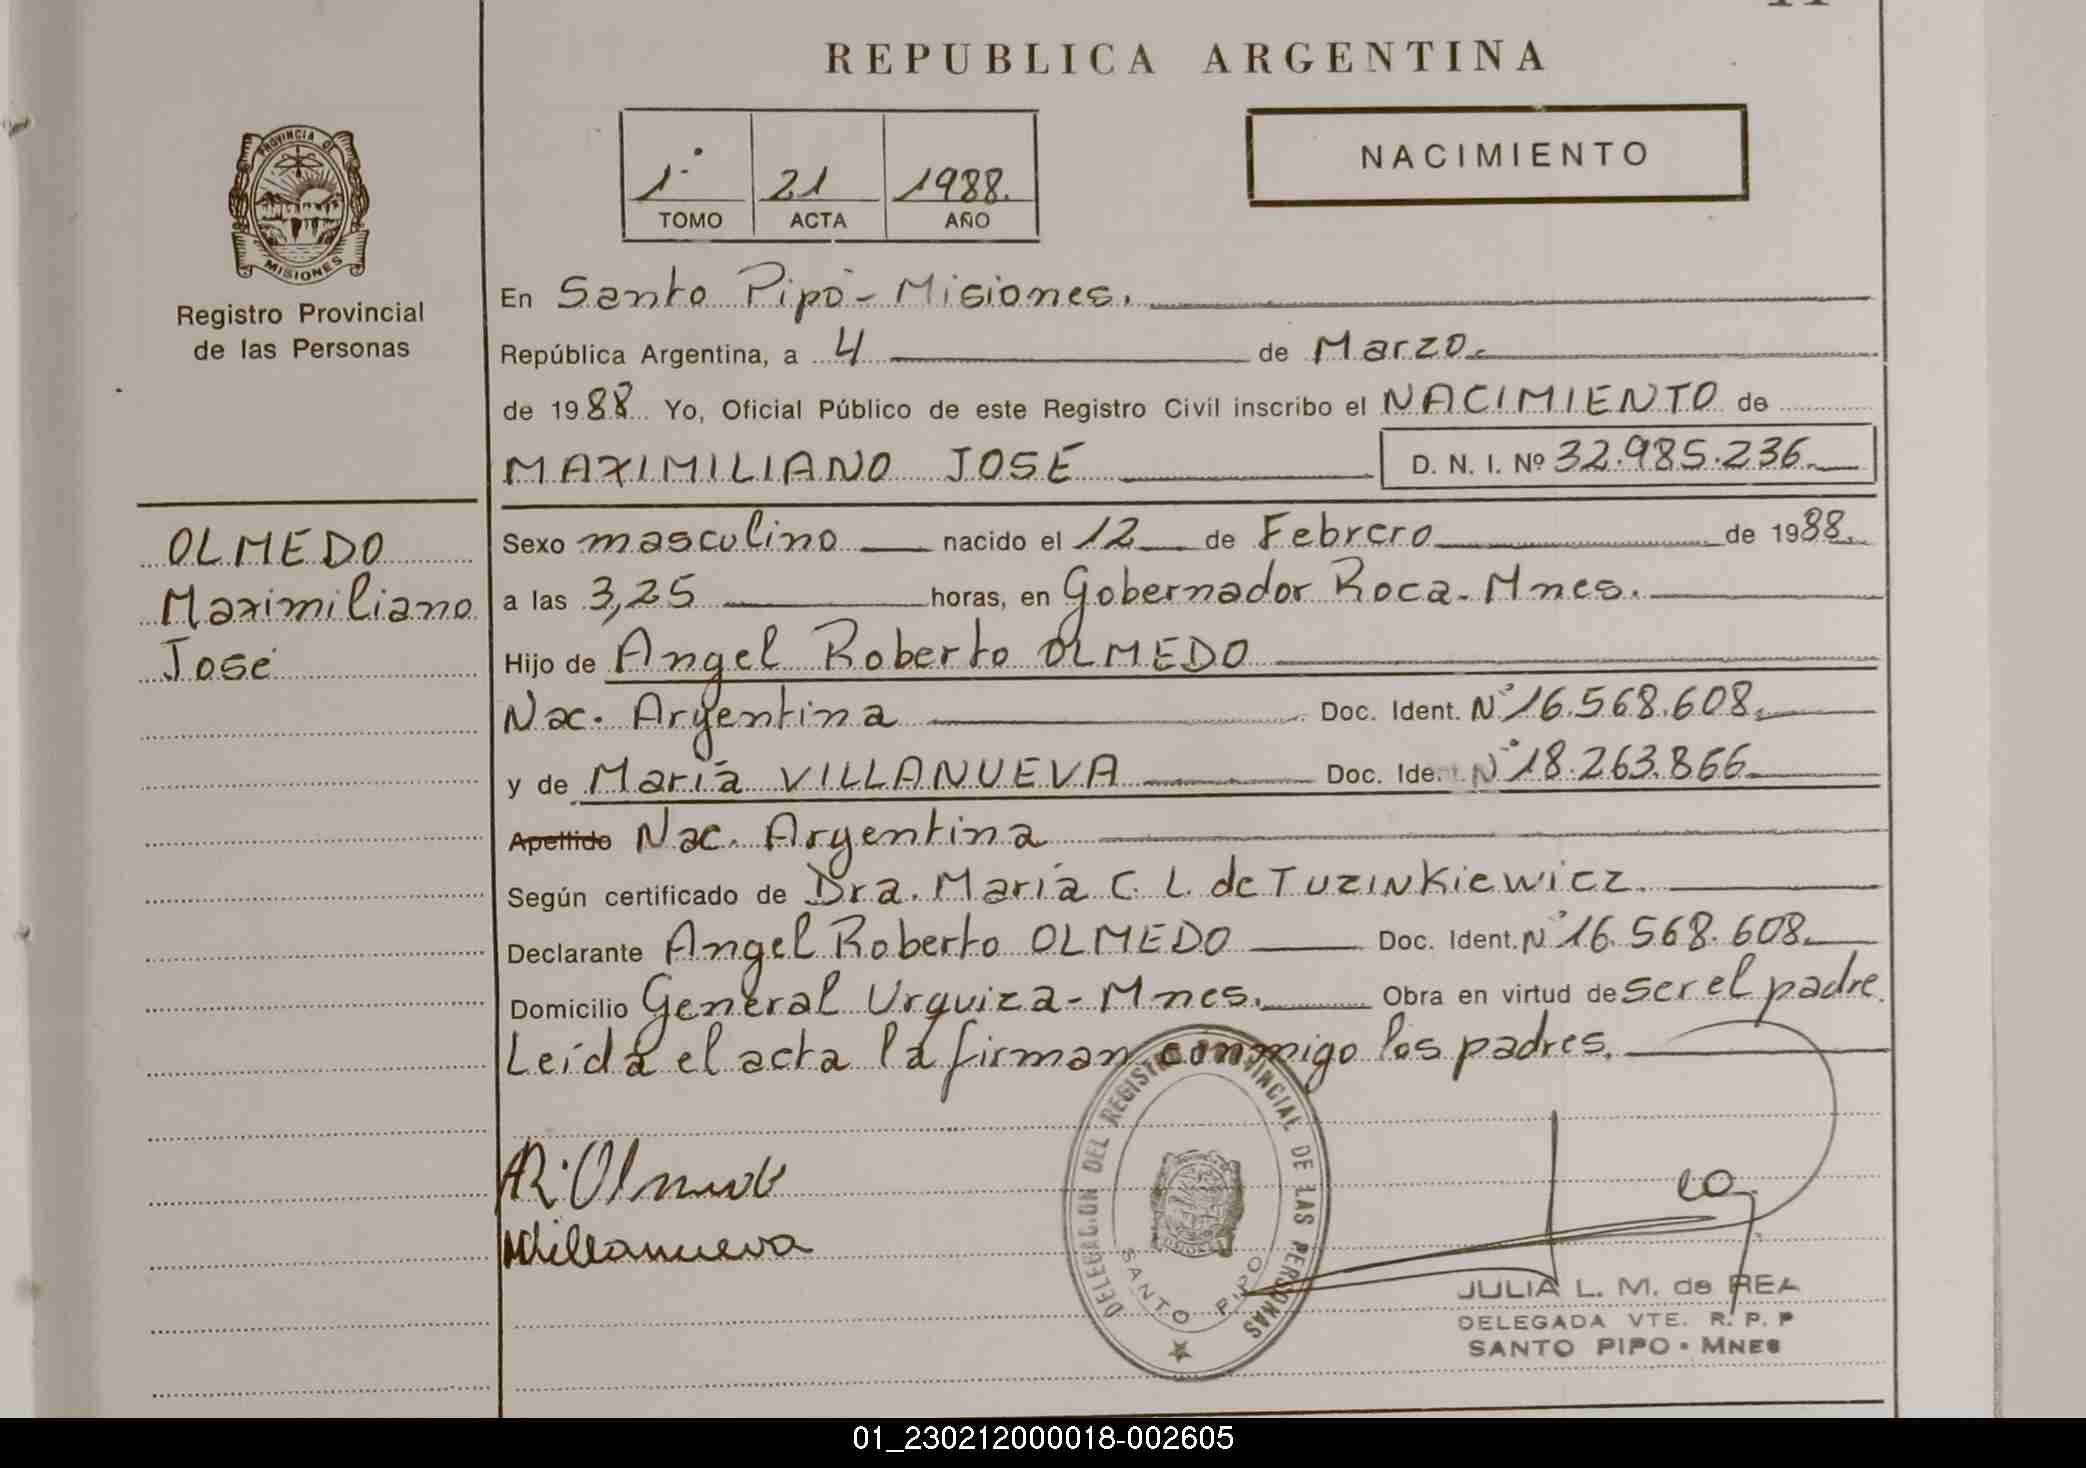 REPUBLICA ARGENTINA
PROVINCIA DE
MISIONES
Registro Provincial
de las Personas
1° 21 1988.
TOMO ACTA AÑO
NACIMIENTO
En Santo Pipó - Misiones.
República Argentina, a 4 de Marzo.
de 1988 Yo, Oficial Público de este Registro Civil inscribo el NACIMIENTO de
MAXIMILIANO JOSÉ D. N. I. Nº 32.985.236.
OLMEDO
Maximiliano
José
Sexo masculino nacido el 12 de Febrero de 1988.
a las 3,25 horas, en Gobernador Roca - Mnes.
Hijo de Angel Roberto OLMEDO
Nac. Argentina Doc. Ident. N° 16.568.608.
y de María VILLANUEVA Doc. Ident. N° 18.263.866.
Apellido Nac. Argentina
Según certificado de Dra. María C. L. de TUZINKiewicz.
Declarante Angel Roberto OLMEDO Doc. Ident. N° 16.568.608.
Domicilio General Urquiza - Mnes. Obra en virtud de ser el padre.
Leída el acta la firman conmigo los padres.
DELEGACION DEL REGISTRO PROVINCIAL DE LAS PERSONAS
SANTO PIPO
MVillanueva
JULIA L. M. de REA
DELEGADA VTE. R. P. P
SANTO PIPO - MNES
01_230212000018-002605